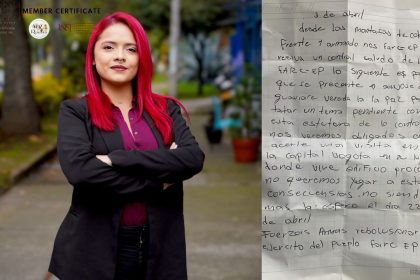 MEMBER CERTIFICATE
3 de abril
desde las montañas de
frente 1 armado nos farc e
reciva un cordial saludo de l
FARC-EP lo siguente es p
que se precente a
guaviare vereda la la paz
tatar un tema pendiente con
esta estrutura de lo contra
nos veremos obligados a
acerle una visita en
la capital Bogota
donde vive edificio
no queremos llegar a esta
consecuensias no siend
mas la espero el dia 22
de abril
Fuerzas Armas rebolusionar
ejercito del pueblo Farc EP